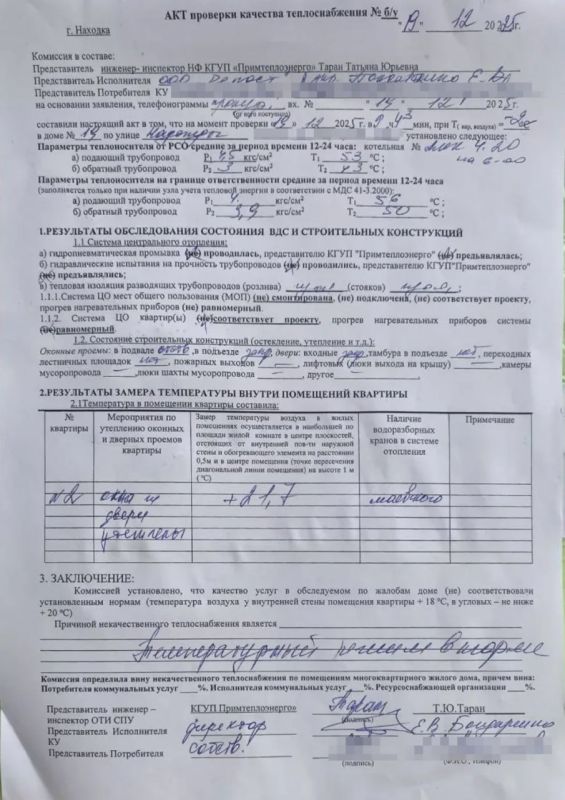 АКТ проверки качества теплоснабжения № б/у
г. Находка "19" 12 2025г.
Комиссия в составе:
Представитель инженер- инспектор НФ КГУП «Примтеплоэнерго» Таран Татьяна Юрьевна
Представитель Исполнителя ООО
Представитель Потребителя КУ
на основании заявления, телефонограммы вх. № "19" 12 2025г.
(от кого поступило)
составили настоящий акт в том, что на момент проверки «19» 12 2025г. в мин, при Т( нар. воздуха) =
в доме № 14 по улице установлено следующее:
Параметры теплоносителя от РСО средние за период времени 12-24 часа: котельная №
а) подающий трубопровод P₁ 4,5 кгс/см² T₁ 53 °С ;
б) обратный трубопровод P₂ 3 кгс/см² T₂ 43 °С ;
Параметры теплоносителя на границе ответственности средние за период времени 12-24 часа
(заполняется только при наличии узла учета тепловой энергии в соответствии с МДС 41-3.2000):
а) подающий трубопровод P₁ 4, кгс/см² T₁ 56 °С ;
б) обратный трубопровод P₂ 3,9 кгс/см² T₂ 50 °С ;
1.РЕЗУЛЬТАТЫ ОБСЛЕДОВАНИЯ СОСТОЯНИЯ ВДС И СТРОИТЕЛЬНЫХ КОНСТРУКЦИЙ
1.1 Система центрального отопления:
а) гидропневматическая промывка (не) проводилась, представителю КГУП "Примтеплоэнерго" (не) предъявлялась;
б) гидравлические испытания на прочность трубопроводов (не) проводились, представителю КГУП"Примтеплоэнерго"
(не) предъявлялись;
в) тепловая изоляция разводящих трубопроводов (розлива) (стояков)
1.1.1.Система ЦО мест общего пользования (МОП) (не) смонтирована, (не) подключена, (не) соответствует проекту,
прогрев нагревательных приборов (не) равномерный.
1.1.2. Система ЦО квартир(ы) (не)соответствует проекту, прогрев нагревательных приборов системы
(не)равномерный.
1.2. Состояние строительных конструкций (остекление, утепление и т.д.):
Оконные проемы: в подвале ,в подъезде закр, двери: входные закр,тамбура в подъезде , переходных
лестничных площадок , пожарных выходов , лифтовых (люки выхода на крышу) ,камеры
мусоропровода ,люки шахты мусоропровода , другое
2.РЕЗУЛЬТАТЫ ЗАМЕРА ТЕМПЕРАТУРЫ ВНУТРИ ПОМЕЩЕНИЙ КВАРТИРЫ
2.1Температура в помещении квартиры составила:
№ квартиры
Мероприятия по утеплению оконных и дверных проемов квартиры
Замер температуры воздуха в жилых помещениях осуществляется в наибольшей по площади жилой комнате в центре плоскостей, отстоящих от внутренней пов-ти наружной стены и обогревающего элемента на расстоянии 0,5м и в центре помещения (точке пересечения диагональной линии помещения) на высоте 1 м (°С)
Наличие водоразборных кранов в системе отопления
Примечание
№2 окна и +21,7 маевского
двери
утеплены
3. ЗАКЛЮЧЕНИЕ:
Комиссией установлено, что качество услуг в обследуемом по жалобам доме (не) соответствовали
установленным нормам (температура воздуха у внутренней стены помещения квартиры + 18 °С, в угловых – не ниже
+ 20 °С)
Причиной некачественного теплоснабжения является
Температурный режим в норме
Комиссия определила вину некачественного теплоснабжения по помещениям многоквартирного жилого дома, причем вина:
Потребителя коммунальных услуг %. Исполнителя коммунальных услуг %. Ресурсоснабжающей организации %.
Представитель инженер – КГУП Примтеплоэнерго» Таран Т.Ю.Таран
инспектор ОТИ СПУ (подпись)
Представитель Исполнителя директор Е.В Бондаренко
КУ
Представитель Потребителя собств.
(подпись) (Ф.И.О., телефон)